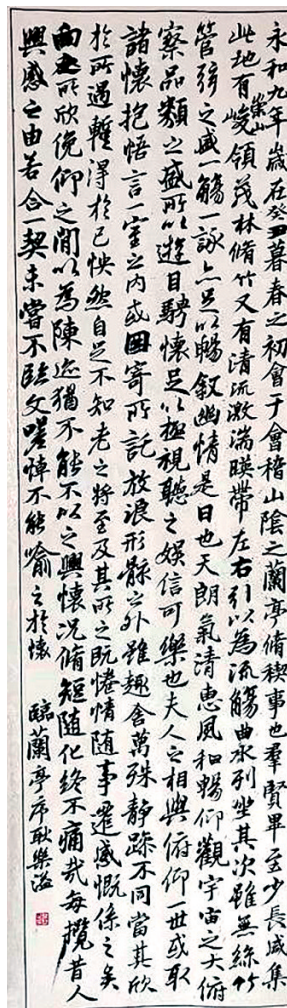 永和九年歲在癸丑暮春之初會于會稽山陰之蘭亭脩禊事也羣賢畢至少長咸集
此地有崇山峻領茂林脩竹又有清流激湍暎帶左右引以為流觴曲水列坐其次雖無絲竹
管弦之盛一觴一詠亦足以暢叙幽情是日也天朗氣清惠風和暢仰觀宇宙之大俯
察品類之盛所以遊目騁懷足以極視聽之娛信可樂也夫人之相與俯仰一世或取
諸懷抱悟言一室之內或因寄所託放浪形骸之外雖趣舍萬殊靜躁不同當其欣
於所遇暫得於己怏然自足不知老之將至及其所之既惓情隨事遷感慨係之矣
向之所欣俛仰之間以為陳迹猶不能不以之興懷况脩短隨化終不痛哉每攬昔人
興感之由若合一契未嘗不臨文嗟悼不能喻之於懷 臨蘭亭序耿樂溢